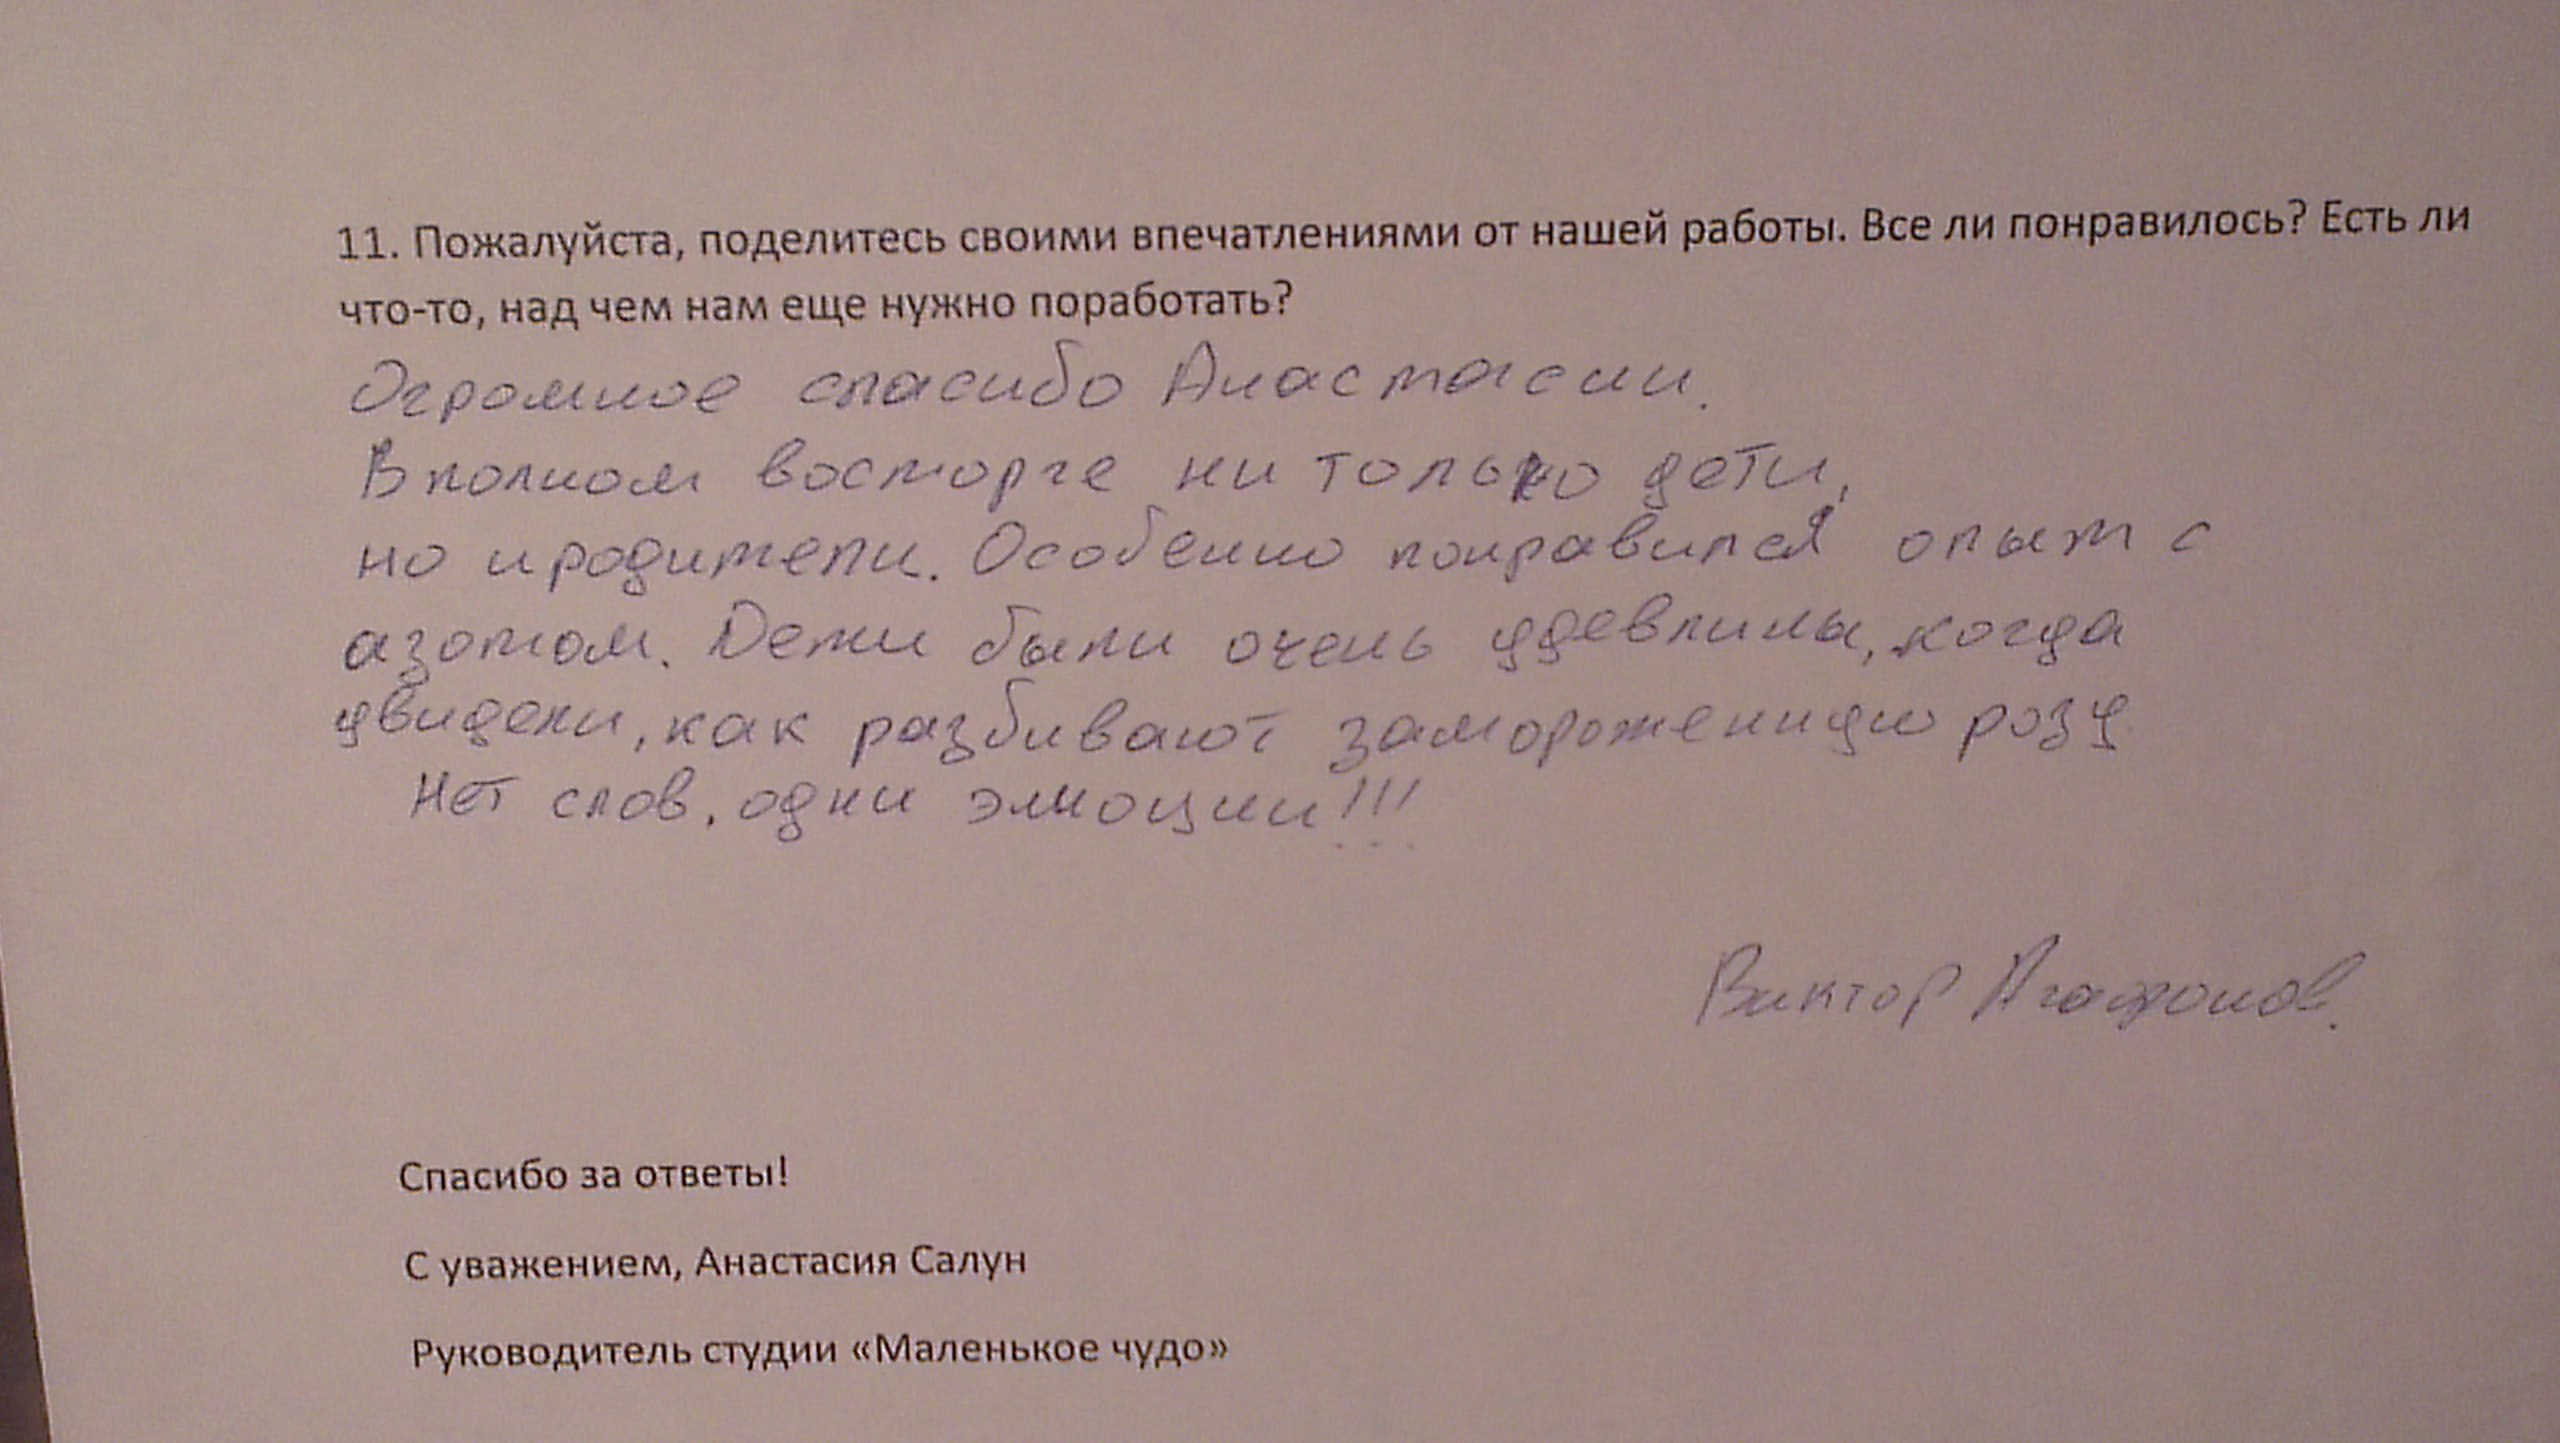 11. Пожалуйста, поделитесь своими впечатлениями от нашей работы. Все ли понравилось? Есть ли
что-то, над чем нам еще нужно поработать?
Огромное спасибо Анастасии.
В полном восторге ни только дети,
но и родители. Особенно понравился опыт с
азотом. Дети были очень удевлины, когда
увидели, как разбивают замороженную розу
Нет слов, одни эмоции!!!
Виктор Агафонов.
Спасибо за ответы!
С уважением, Анастасия Салун
Руководитель студии «Маленькое чудо»